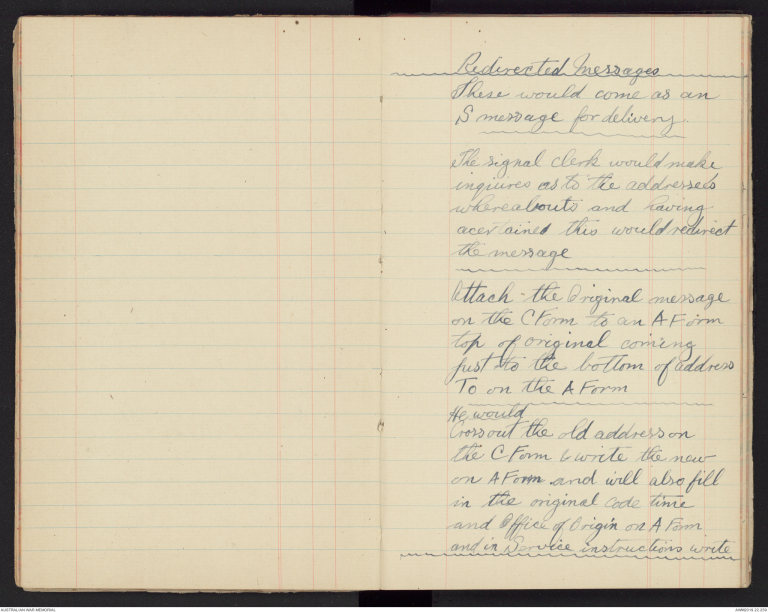 Redirected Messages
These would come as an
S message for delivery.
The signal clerk would make
inquires as to the addressees
whereabouts and having
acertained this would redirect
the message
Attach the Original message
on the C Form to an A Form
top of original coming
just to the bottom of address
To on the A Form
He would
Cross out the old address on
the C Form & write the new
on A Form and will also fill
in the original Code time
and Office of Origin on A Form
and in Service instructions write
AUSTRALIAN WAR MEMORIAL